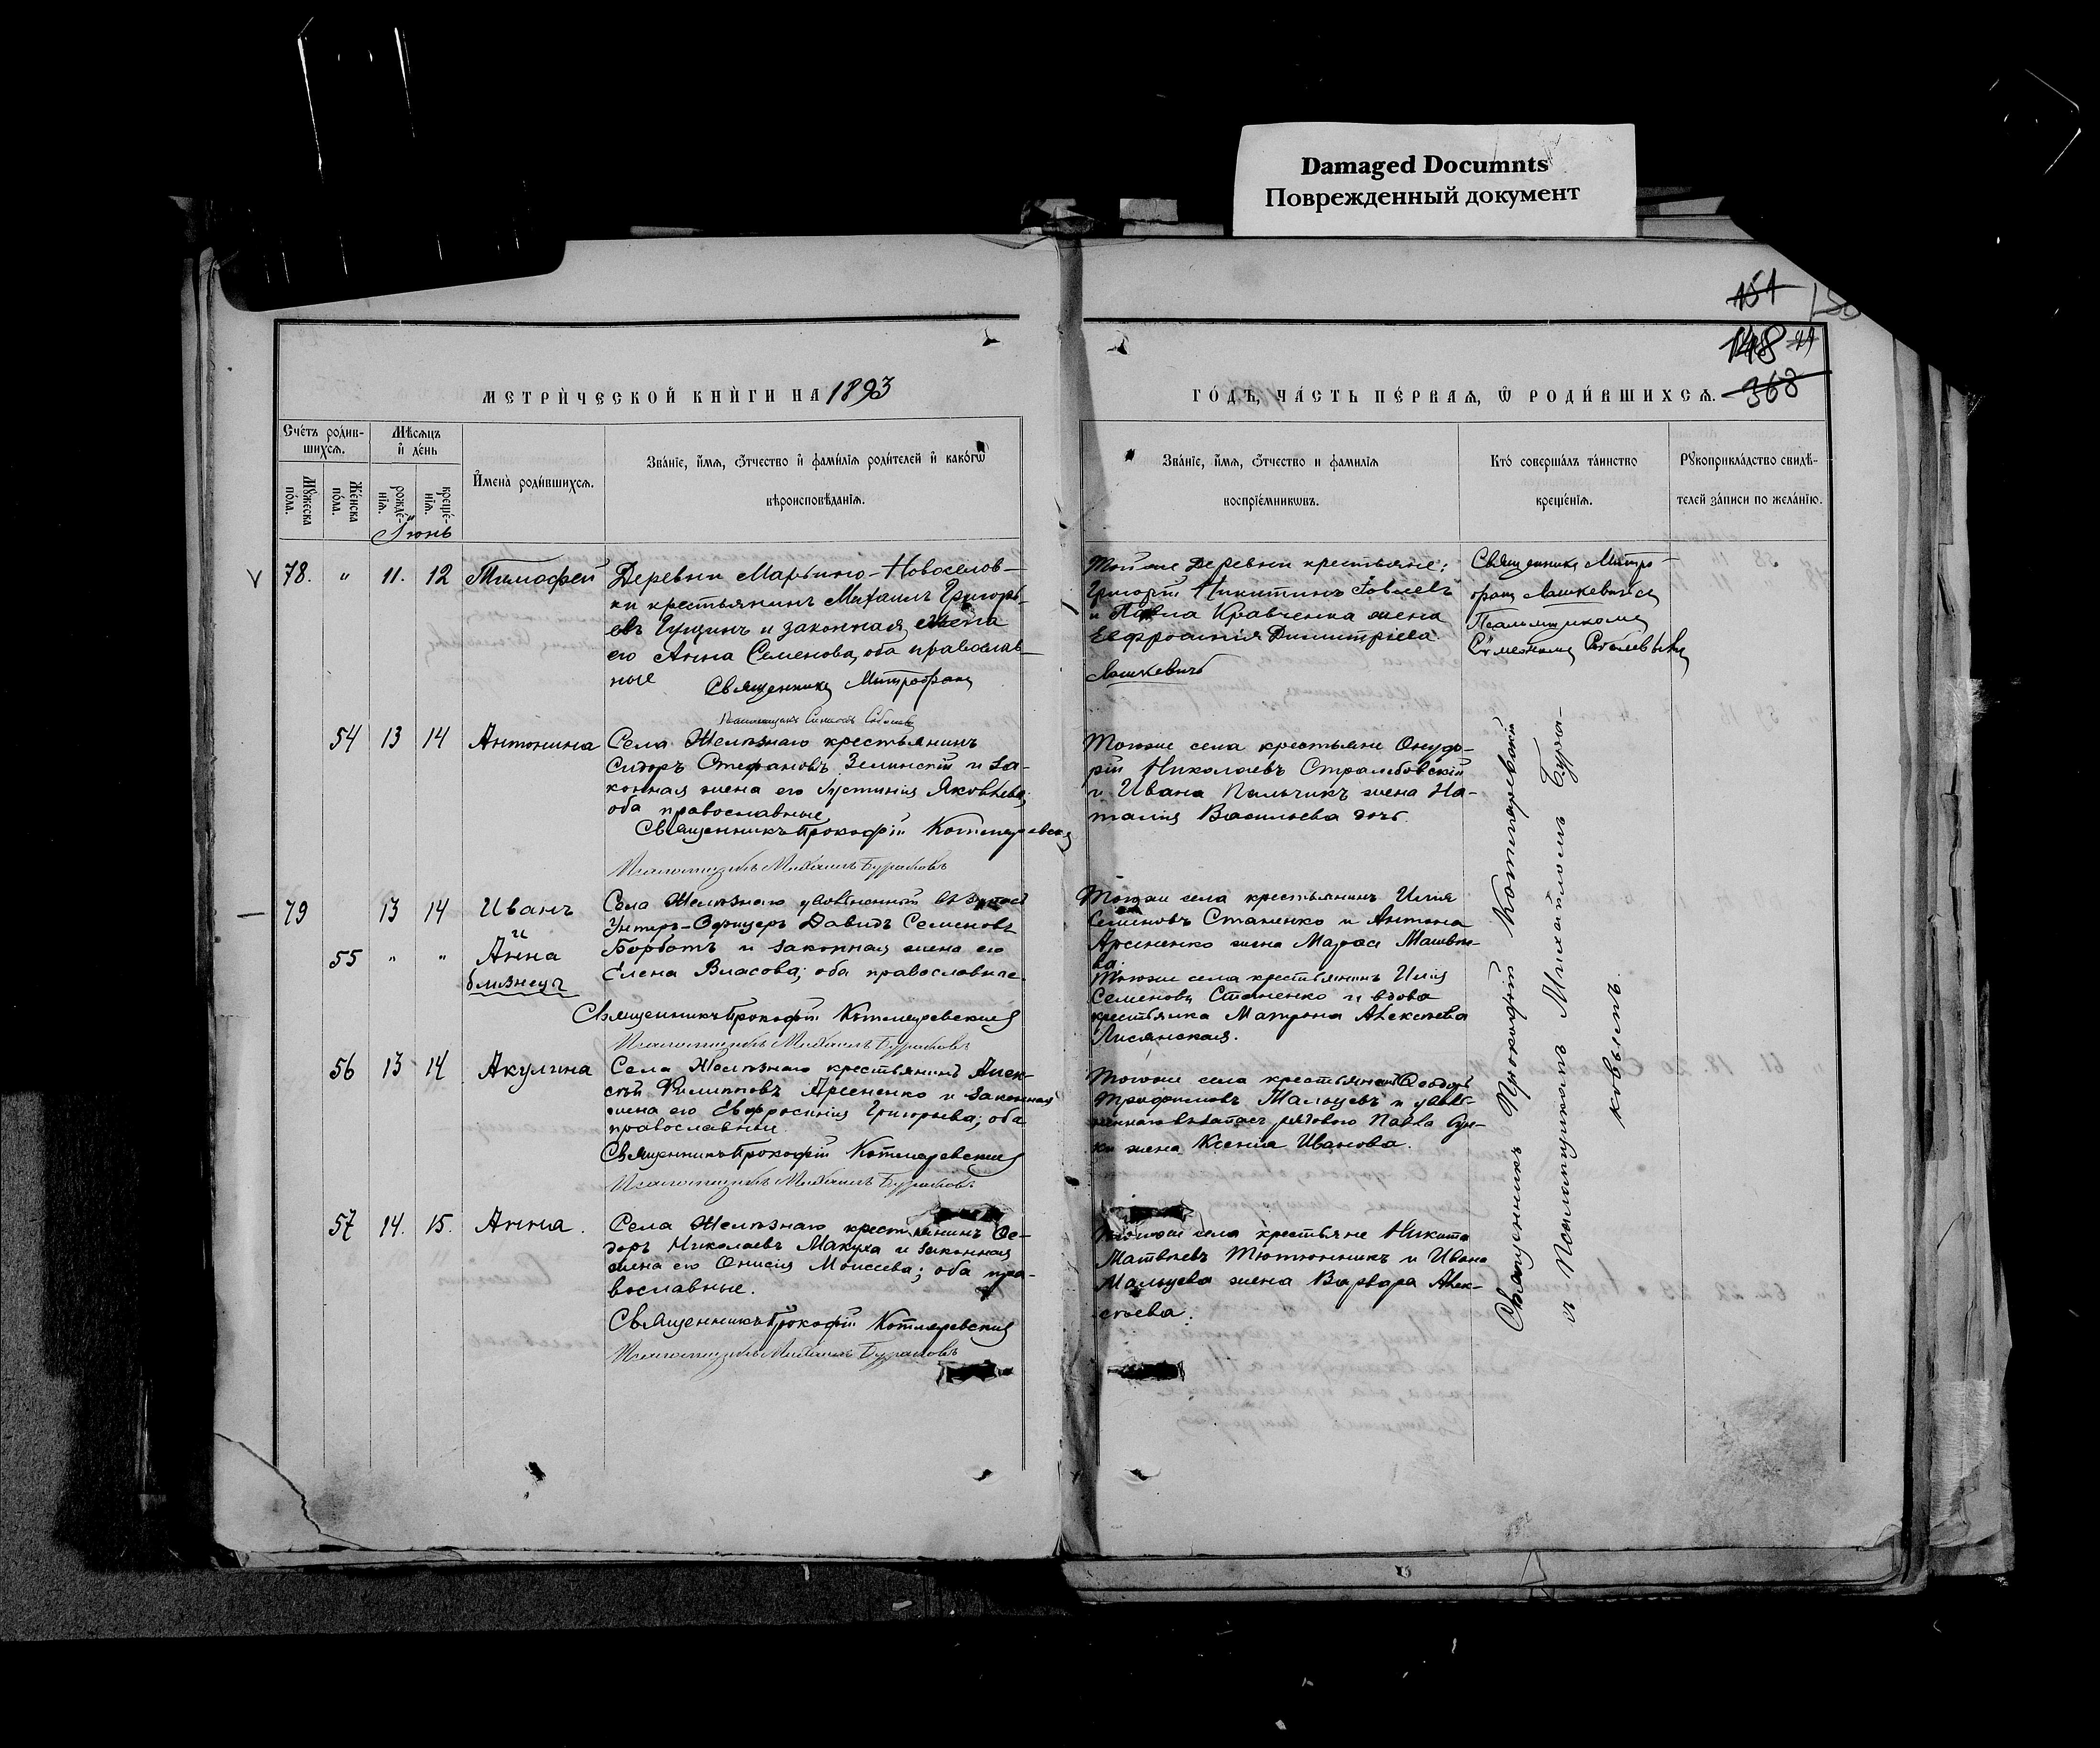 Damaged Documnts
Поврежденный документ
151
148
368
МЕТРИ́ЧЕСКОЙ КНИ́ГИ НА 1893
ГО́ДЪ, ЧА́СТЬ ПЕ́РВАѦ, Ѿ РОДИ́ВШИХСѦ.
Сче́тъ роди́в-
шихсѧ.
Мѣ́сѧцъ
и҆ де́нь
Мꙋ́жеска
по́ла.
Же́нска
по́ла.
рожде́-
нїѧ.
креще́-
нїѧ.
И҆мена̀ роди́вшихсѧ.
Зва́нїе, и҆́мѧ, ѻ҆́тчество и҆ фами́лїѧ роди́телей и҆ како́гѡ
вѣроисповѣ́данїѧ.
Зва́нїе, и҆́мѧ, ѻ҆́тчество и фами́лїѧ
воспрїе́мникѡвъ.
Кто̀ соверша́лъ та́инство
креще́нїѧ.
Рꙋкоприкла́дство свидѣ́-
телей за́писи по жела́нїю.
Іюнь
78. " 11. 12 Тимофей
Деревни Марьино-Новоселов-
ки крестьянинъ Михаилъ Григорь-
евъ Гущинъ и законная жена
его Анна Семенова, оба православ-
ные
Священникъ Митрофанъ
Лашкевичъ
Той же деревни крестьяне:
Григорій Никитинъ
и Павла Кравченка жена
Евфросинія Димитріева
Священникъ Митро-
фанъ Лашкевичъ съ
Псаломщикомъ
54 13 14 Антонина
Села Желѣзнаго крестьянинъ
Сидоръ Стефановъ Зелинскій и за-
конная жена его Іустинія Яковлева;
оба православные
Священникъ Прокофій Котляревскій
Псаломщикъ Михаилъ Бурлаковъ
Тогоже села крестьяне Онуф-
рій Николаевъ
и Ивана Пальчикъ жена На-
талія Васильева дочь.
79 13 14 Иванъ
и
55 " " Анна
близнецы
Села Желѣзнаго уволенный въ запасъ
Унтеръ-Офицеръ Давидъ Семеновъ
Борботъ и законная жена его
Елена Власова; оба православные.
Священникъ Прокофій Котляревскій
Псаломщикъ Михаилъ Бурлаковъ
Тогоже села крестьянинъ Илія
Семеновъ Стаценко и Антона
Арсененко жена Марѳа Матвѣе-
ва.
Тогоже села крестьянинъ Илія
Семеновъ Стаценко и вдова
крестьянка Матрона Алексѣева
Лисянская.
56 13 14 Акулина
Села Желѣзнаго крестьянинъ Алек-
сѣй Филипповъ Арсененко и законная
жена его Евфросинія Григорьева; оба
православные.
Священникъ Прокофій Котляревскій
Псаломщикъ Михаилъ Бурлаковъ
Тогоже села крестьянинъ Ѳеодоръ
Трофимовъ Мальцевъ и уволь-
неннаго въ запасъ рядового Павла
жена Ксенія Иванова.
57 14. 15. Анна.
Села Желѣзнаго крестьянинъ Ѳе-
доръ Николаевъ Макуха и законная
жена его Онисія Моисеева; оба пра-
вославные.
Священникъ Прокофій Котляревскій
Псаломщикъ Михаилъ Бурлаковъ
Тогоже села крестьяне Никита
Матвѣевъ Тютюнникъ и Ивана
Мальцева жена Варвара Алек-
сѣева.
Священникъ Прокофій Котляревскій
съ Псаломщикомъ Михаиломъ Бурла-
ковымъ.